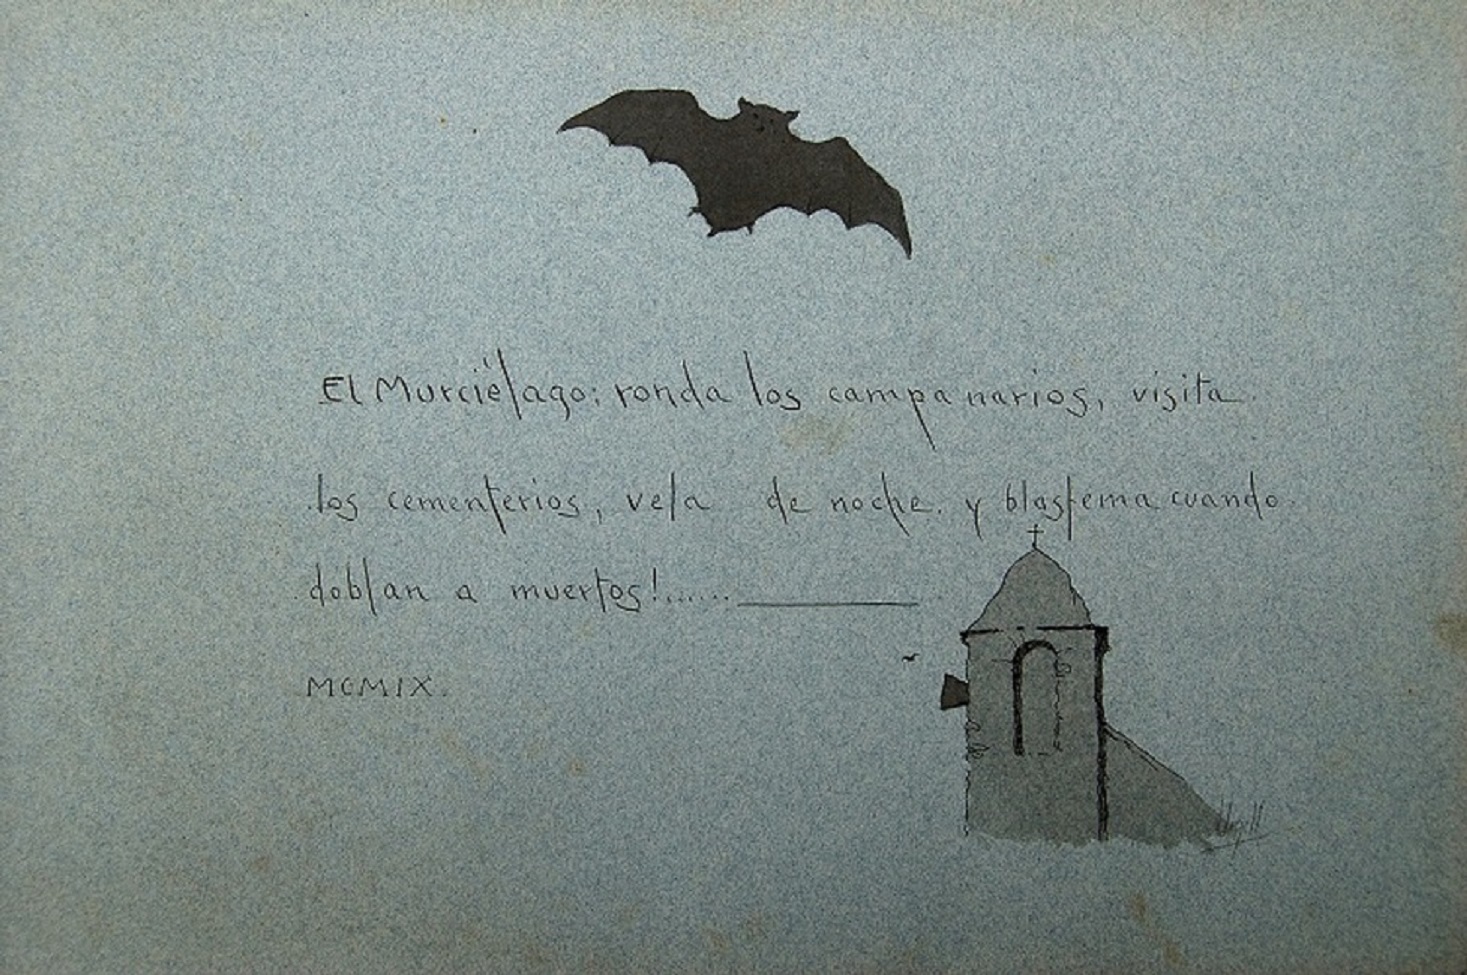 El Murciélago; ronda los campanarios, visita
los cementerios, vela de noche. y blasfema cuando
doblan a muertos!......
MCMIX.